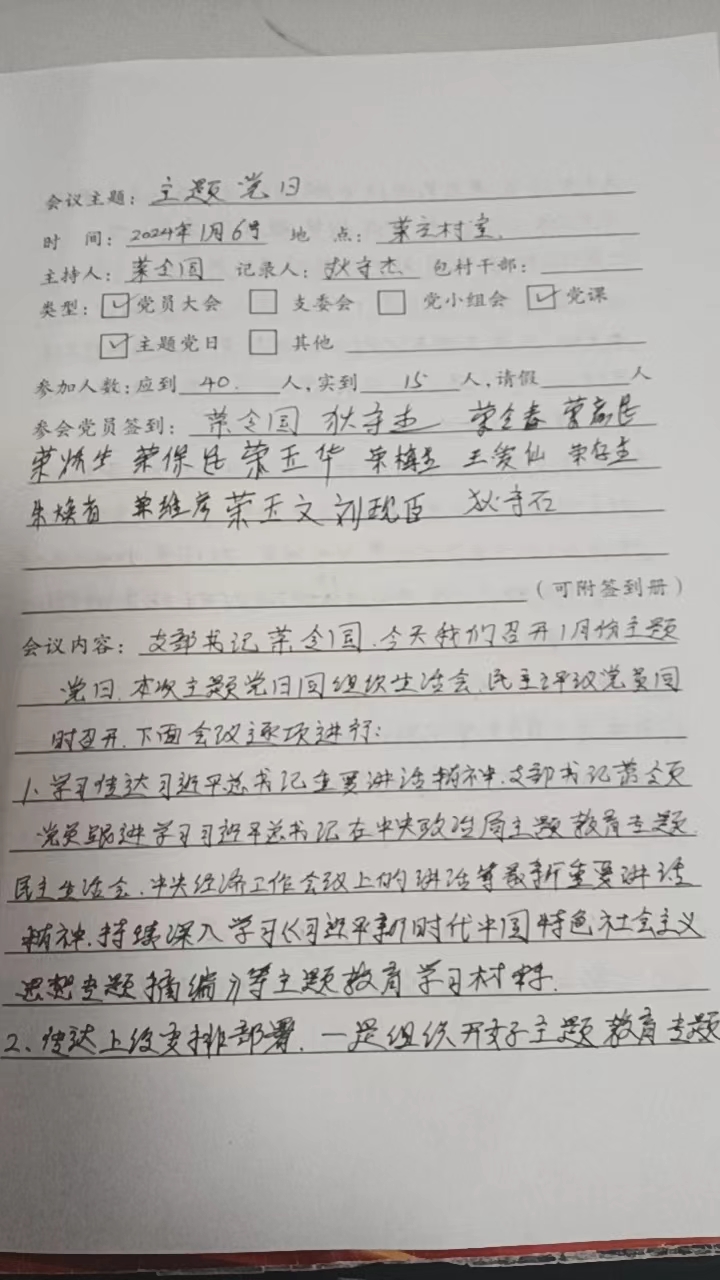 会议主题: 主题党日
时 间: 2024年1月6号 地 点: 荣立村室.
主持人: 荣令国 记录人: 狄守杰 包村干部:
类型: ☑党员大会 □支委会 □党小组会 ☑党课
☑主题党日 □其他
参加人数: 应到 40. 人, 实到 15 人, 请假 人
参会党员签到: 荣令国 狄守杰 荣全春
荣保 荣玉华 王爱仙
朱焕 荣维彦 荣玉文 刘现臣 狄守石
(可附签到册)
会议内容: 支部书记荣令国.今天我们召开1月份主题
党日.本次主题党日同组织生活会.民主评议党员同
时召开.下面会议逐项进行:
1、学习传达习近平总书记重要讲话精神.支部书记带领
党员跟进学习习近平总书记在中央政治局主题教育专题
民主生活会.中央经济工作会议上的讲话等最新重要讲话
精神.持续深入学习《习近平新时代中国特色社会主义
思想专题摘编》等主题教育学习材料.
2、传达上级安排部署.一是组织开好主题教育专题